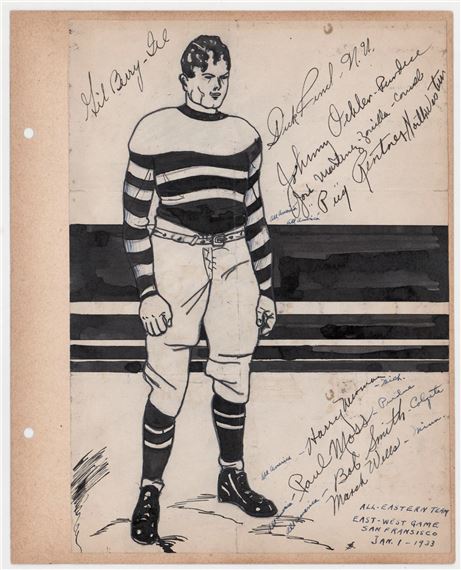 Gil Berry - Ill
Dick Fencl - N.U.
Johnny Oehler - Purdue
José Martinez-Zorilla - Cornell
All America
"Pug" Rentner Northwestern
All America
All America - Harry Newman - Mich.
All America Paul Moss - Purdue
All America Bob Smith - Colgate
Marsh Wells - Minn.
ALL-EASTERN TEAM
EAST-WEST GAME
SAN FRANSISCO
JAN. 1 - 1933